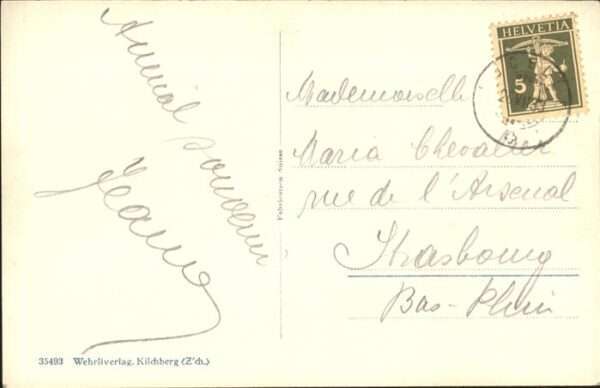 Amical souvenir
Jeanne
Fabrication Suisse
35493 Wehrliverlag, Kilchberg (Z'ch.)
HELVETIA
5
Mademoiselle
Maria Chevalier
rue de l'Arsenal
Strasbourg
Bas-Rhin